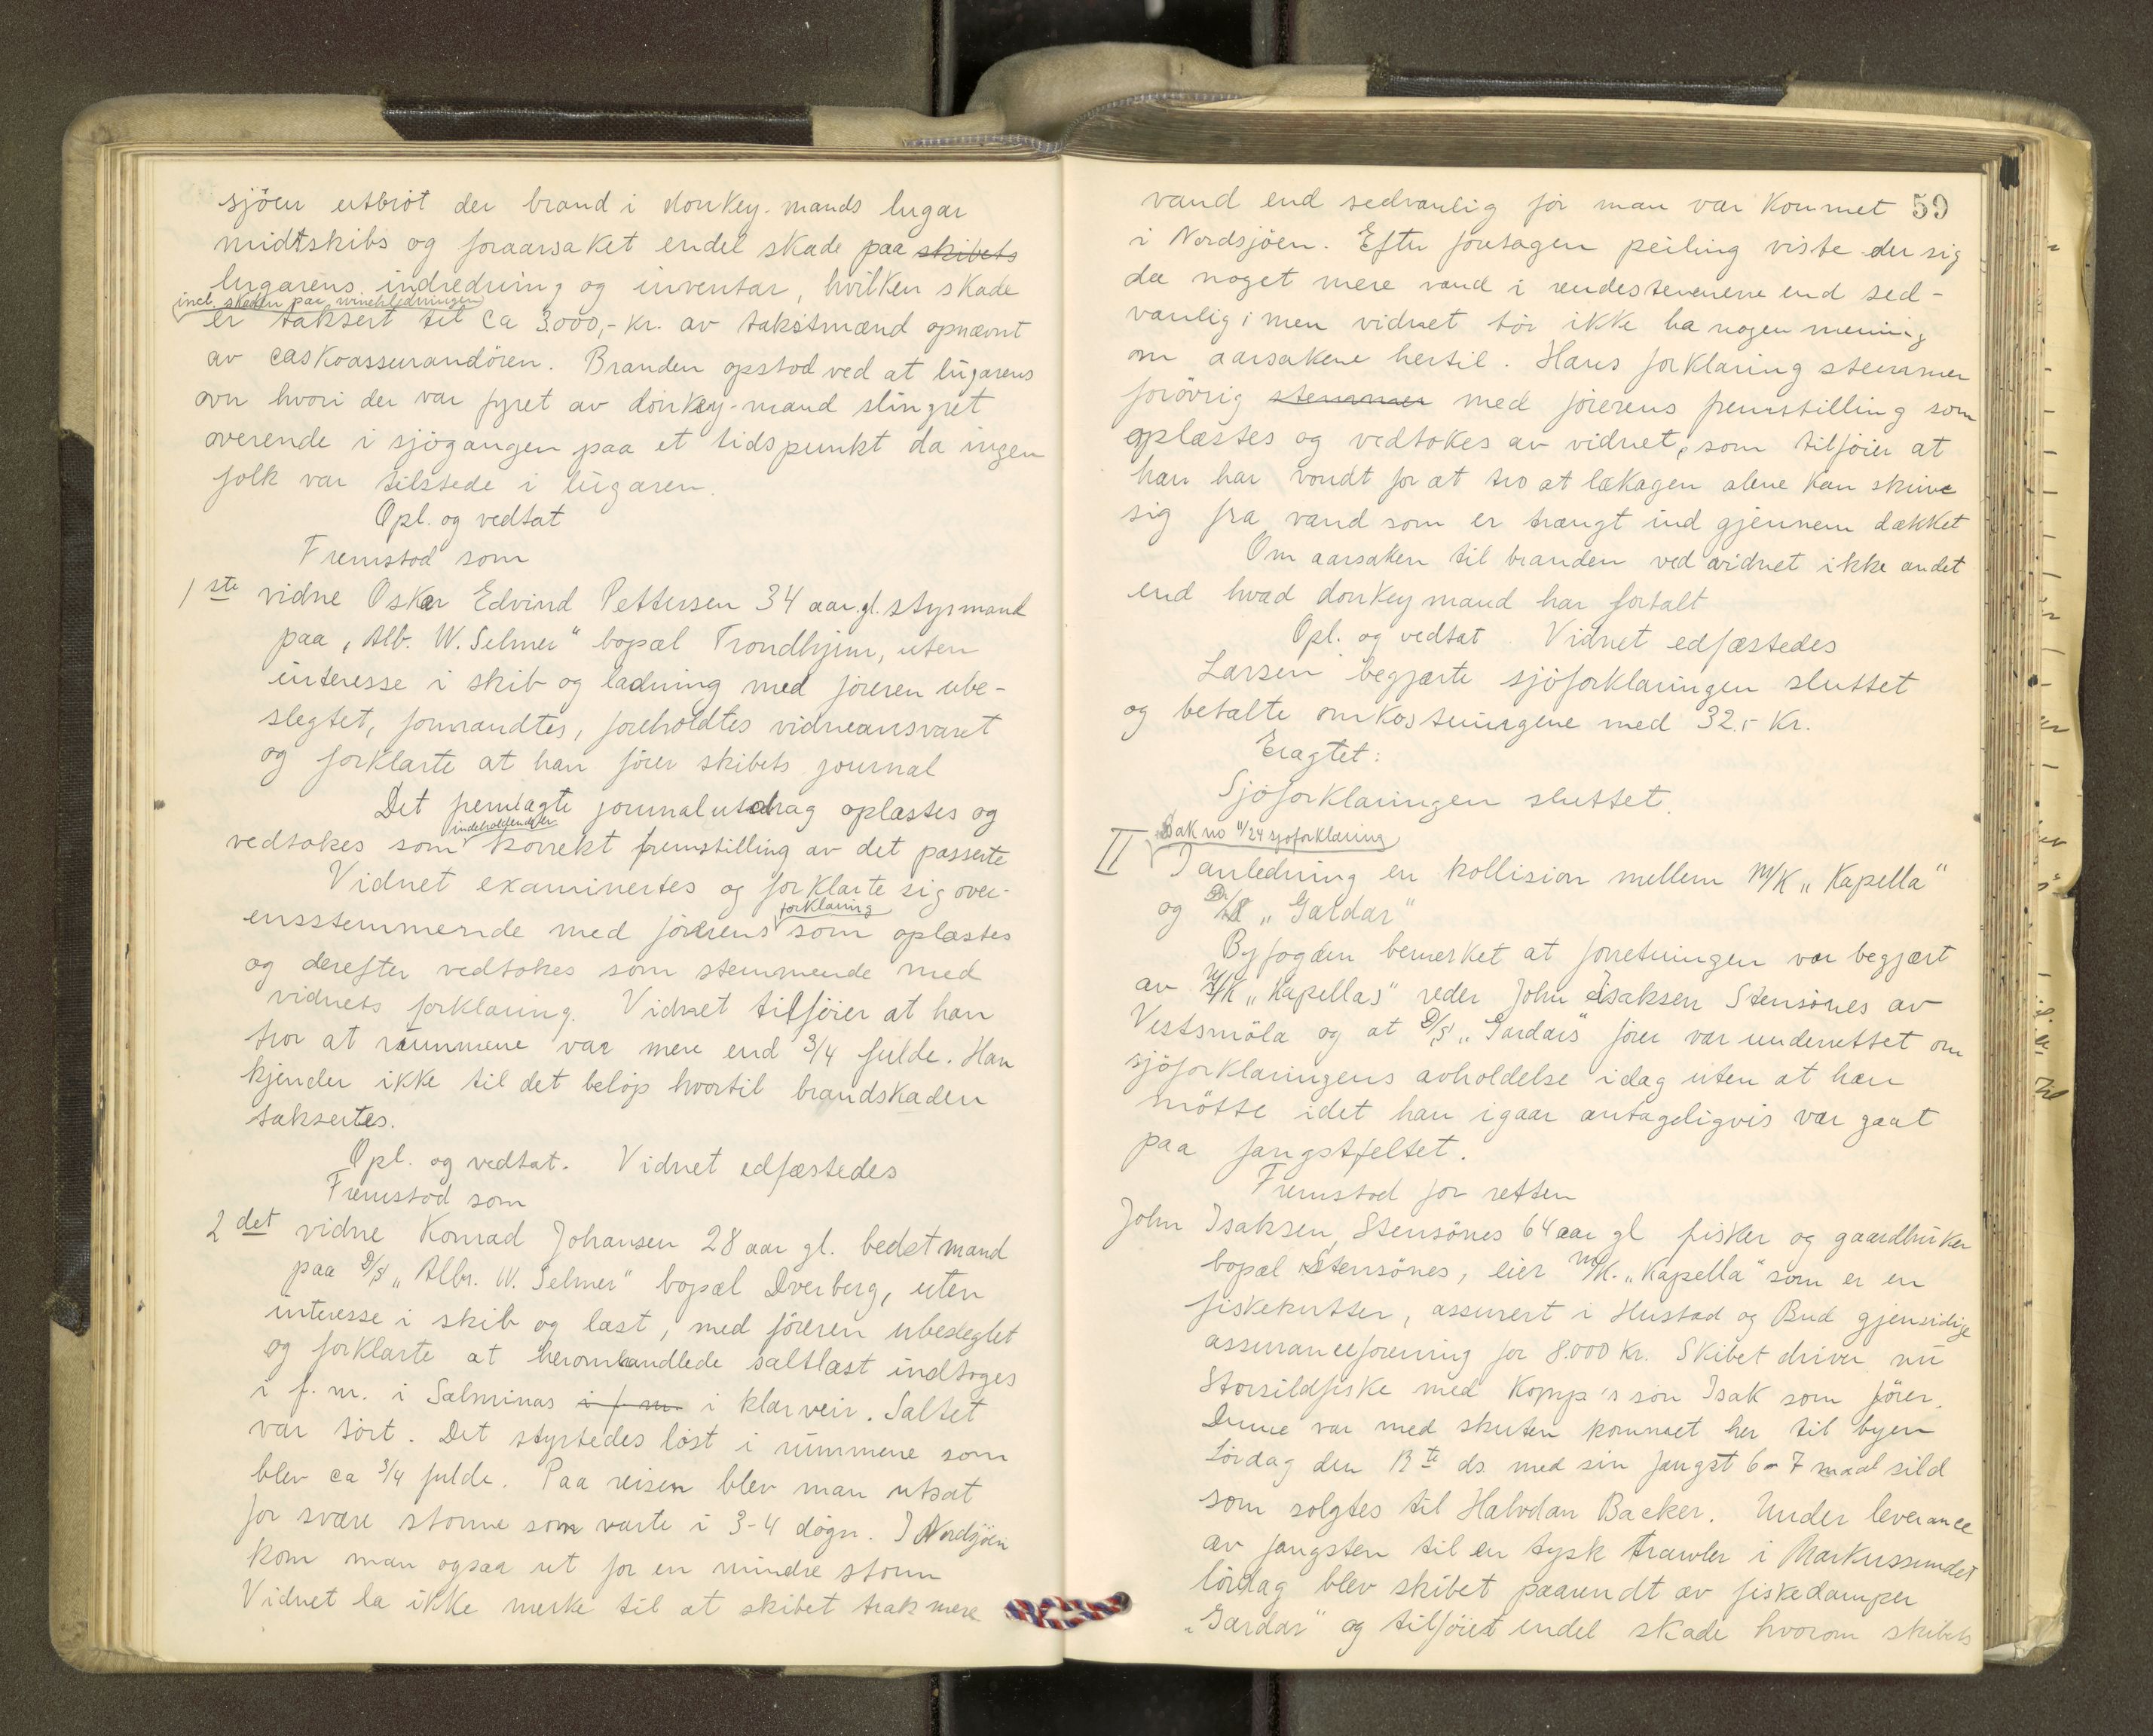 sjöen utbröt der brand i donkey-mands lugar
midtskibs og foraarsaket endel skade paa skibets
lugarens indredning og inventar, hvilken skade
incl. skaden paa winchledningen
er taksert til ca 3.000,- kr. av takstmænd opnævnt
av caskoassurandören. Branden opstod ved at lugarens
ovn hvori der var fyret av donkey-mand slingret
overende i sjögangen paa et tidspunkt da ingen
folk var tilstede i lugaren.
Opl. og vedtat
Fremstod som
1ste vidne Oskar Edvind Pettersen 34 aar. gl. styrmand
paa „Alb. W. Selmer" bopæl Trondhjem, uten
interesse i skib og ladning med föreren ube-
slegtet, formandtes, foreholdtes vidneansvaret
og forklarte at han förer skibets journal
Det fremlagte journalutdrag oplæstes og
indeholdende en
vedtokes som korrekt fremstilling av det passerte
Vidnet examinertes og forklarte sig over-
forklaring
ensstemmende med förerens som oplæstes
og derefter vedtokes som stemmende med
vidnets forklaring. Vidnet tilföier at han
tror at rummene var mere end 3/4 fulde. Han
kjender ikke til det belöp hvortil brandskaden
taksertes.
Opl. og vedtat. Vidnet edfæstedes
Fremstod som
2det vidne Konrad Johansen 28 aar gl. bedstmand
paa D/S „Albr. W. Selmer" bopæl Dverberg, uten
interesse i skib og last, med föreren ubeslegtet
og forklarte at heromhandlede saltlast indtoges
i f. m. i Salminas i f. m. i klarveir. Saltet
var tört. Det styrtedes löst i rummene som
blev ca 3/4 fulde. Paa reisen blev man utsat
for svære storme som varte i 3-4 dögn. I Nordsjöen
kom man ogsaa ut for en mindre storm
Vidnet la ikke merke til at skibet trak mere
59
vand end sedvanlig för man var kommet
i Nordsjöen. Efter foretagen peiling viste der sig
da noget mere vand i rendestenene end sed-
vanlig; men vidnet tör ikke ha nogen mening
om aarsakene hertil. Hans forklaring stemmer
forövrig stemmer med förerens fremstilling som
oplæstes og vedtokes av vidnet, som tilföier at
han har vondt for at tro at lækagen alene kan skrive
sig fra vand som er trængt ind gjennem dækket
Om aarsaken til branden ved vidnet ikke andet
end hvad donkeymand har fortalt
Opl. og vedtat. Vidnet edfæstedes
Larsen begjærte sjöforklaringen sluttet
og betalte omkostningene med 32,- Kr.
Eragtet:
Sjöforklaringen sluttet.
Sak no 11/24 sjøforklaring
II I anledning en kollision mellem M/K „Kapella"
og D/S „Gardar"
Byfogden bemerket at forretningen var begjært
av M/K „Kapellas" reder John Isaksen Stensönes av
Vestsmöla og at D/S „Gardars" förer var underrettet om
sjöforklaringens avholdelse idag uten at han
mötte idet han igaar antageligvis var gaat
paa fangstfeltet.
Fremstod for retten
John Isaksen Stensönes 64 aar gl fisker og gaardbruker
bopæl Stensönes, eier M/K. „Kapella" som er en
fiskekutter, assurert i Hustad og Bud gjensidige
assuranceforening for 8.000 Kr. Skibet driver nu
Storsildfiske med Komp's sön Isak som förer.
Denne var med skuten kommet her til byen
Lördag den 13te ds. med sin fangst 6-7 maal sild
som solgtes til Halvdan Backer. Under leverance
av fangsten til en tysk trawler i Markussundet
lördag blev skibet paarendt av fiskedamper
„Gardar" og tilföiet endel skade hvorom skibets